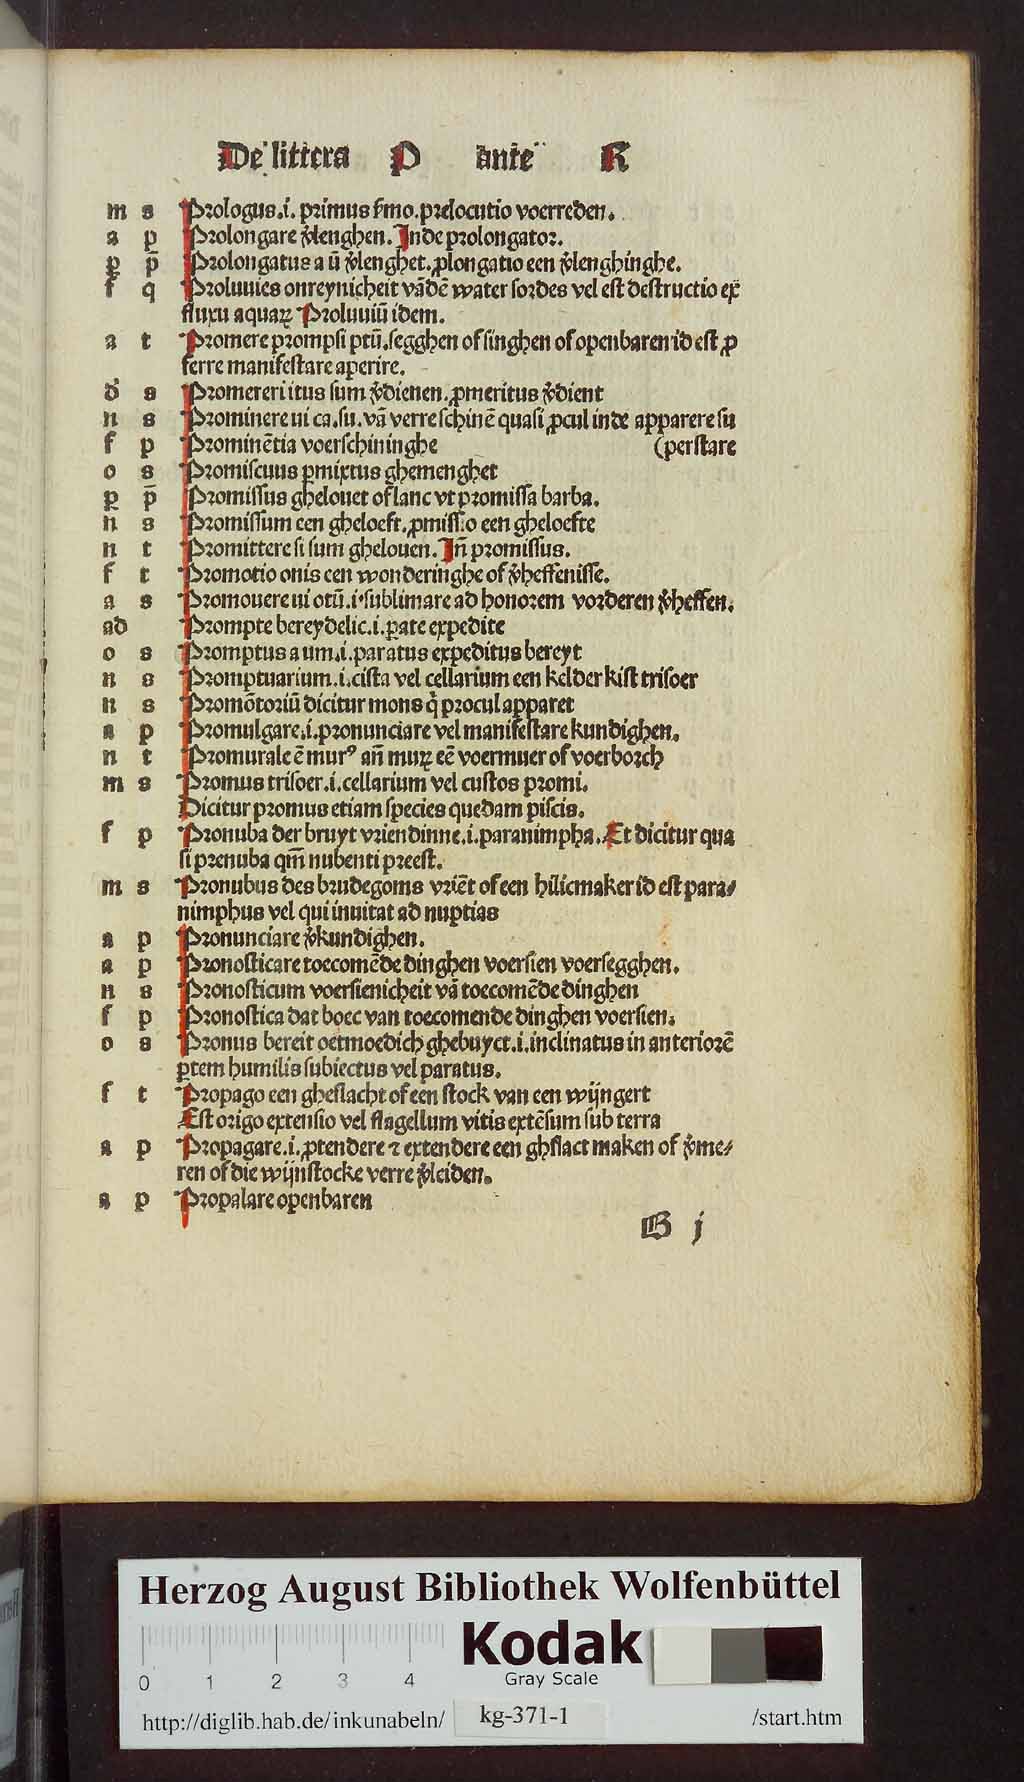 De littera P ante R
m s Prologus.i. primus s̄mo.prelocutio voerreden.
a p Prolongare v̄lenghen. Inde prolongator.
ꝑ p̄ Prolongatus a ū v̄lenghet.ꝓlongatio een v̄lenghinghe.
f q Proluuies onreynicheit vādē water sordes vel est destructio ex̄
fluxu aquaꝝ Proluuiū idem.
a t Promere prompsi ptū.segghen of singhen of openbaren id est ꝓ
ferre manifestare aperire.
d̄ s Promereri itus sum v̄dienen.ꝓmeritus v̄dient
n s Prominere ui ca.su. vā verre schinē quasi ꝓcul inde apparere su
f p Prominētia voerschininghe (perstare
o s Promiscuus ꝑmixtus ghemenghet
ꝑ p̄ Promissus ghelouet of lanc vt promissa barba.
n s Promissum een gheloeft.ꝓmissio een gheloefte
n t Promittere si sum ghelouen. In̄ promissus.
f t Promotio onis een wonderinghe of v̄heffenisse.
a s Promouere ui otū.i.sublimare ad honorem vorderen v̄heffen.
ad Prompte bereydelic.i.ꝑate expedite
o s Promptus a um.i.paratus expeditus bereyt
n s Promptuarium.i.cista vel cellarium een kelder kist trisoer
n s Promōtoriū dicitur mons q̇ procul apparet
a p Promulgare.i.pronunciare vel manifestare kundighen.
n t Promurale ē murꝰ an̄ muꝝ eē voermuer of voerborch
m s Promus trisoer.i.cellarium vel custos promi.
Dicitur promus etiam species quedam piscis.
f p Pronuba der bruyt vriendinne.i.paranimpha. Et dicitur qua
si prenuba qm̄ nubenti preest.
m s Pronubus des brudegoms vriēt of een hilicmaker id est para⸗
nimphus vel qui inuitat ad nuptias
a p Pronunciare v̄kundighen.
a p Pronosticare toecomēde dinghen voersien voersegghen.
n s Pronosticum voersienicheit vā toecomēde dinghen
f p Pronostica dat boec van toecomende dinghen voersien.
o s Pronus bereit oetmoedich ghebuyct.i.inclinatus in anteriorē
ꝑtem humilis subiectus vel paratus.
f t Propago een gheslacht of een stock van een wijngert
Est origo extensio vel flagellum vitis extēsum sub terra
a p Propagare.i.ꝓtendere ⁊ extendere een ghslact maken of v̄me⸗
ren of die wijnstocke verre v̄leiden.
a p Propalare openbaren
B j
Herzog August Bibliothek Wolfenbüttel
Kodak
Gray Scale
0 1 2 3 4
http://diglib.hab.de/inkunabeln/ kg-371-1 /start.htm